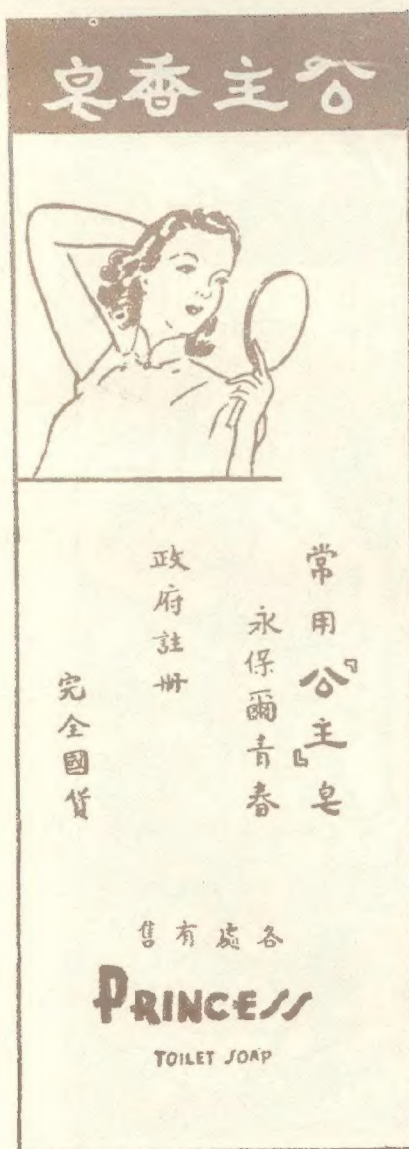 公主香皂
常用『公主』皂
永保爾青春
政府註冊
完全國貨
各處有售
PRINCESS
TOILET SOAP